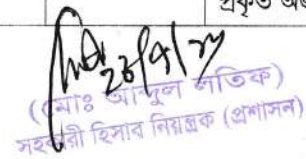 প্রকৃত অ
(মোঃ আব্দুল লতিফ)
সহকারী হিসাব নিয়ন্ত্রক (প্রশাসন)